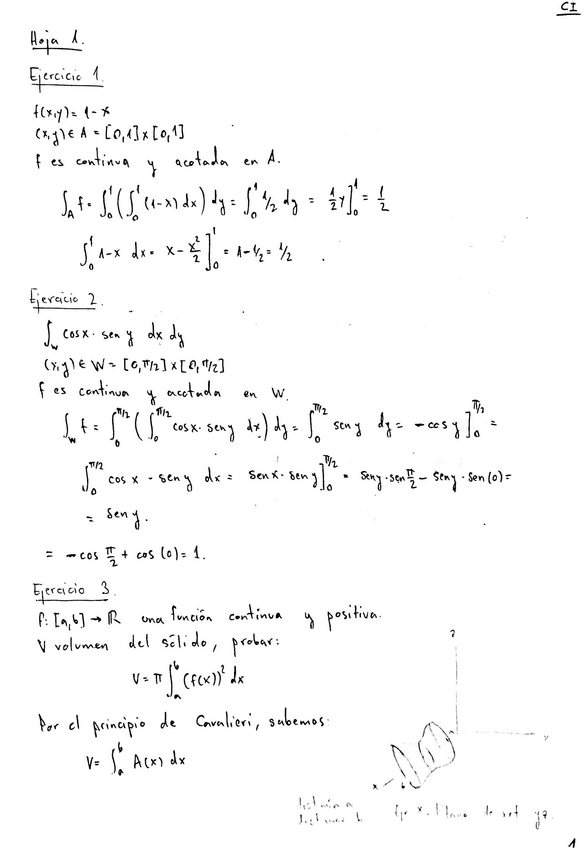 CI
Hoja 1.
Ejercicio 1.
f(x,y) = 1-x
(x,y) ∈ A = [0,1]x[0,1]
f es continua y acotada en A.
∫_A f = ∫_0^1 (∫_0^1 (1-x) dx) dy = ∫_0^1 1/2 dy = 1/2 y]_0^1 = 1/2
∫_0^1 1-x dx = x - x²/2]_0^1 = 1 - 1/2 = 1/2
Ejercicio 2.
∫_W cos x · sen y dx dy
(x,y) ∈ W = [0,π/2]x[0,π/2]
f es continua y acotada en W.
∫_W f = ∫_0^{π/2} (∫_0^{π/2} cos x · sen y dx) dy = ∫_0^{π/2} sen y dy = -cos y]_0^{π/2} =
∫_0^{π/2} cos x · sen y dx = sen x · sen y]_0^{π/2} = sen y · sen π/2 - sen y · sen (0) =
= sen y.
= -cos π/2 + cos (0) = 1.
Ejercicio 3.
f: [a,b] → ℝ una función continua y positiva.
V volumen del sólido, probar:
V = π ∫_a^b (f(x))² dx
Por el principio de Cavalieri, sabemos:
V = ∫_a^b A(x) dx
x
Eje x
1